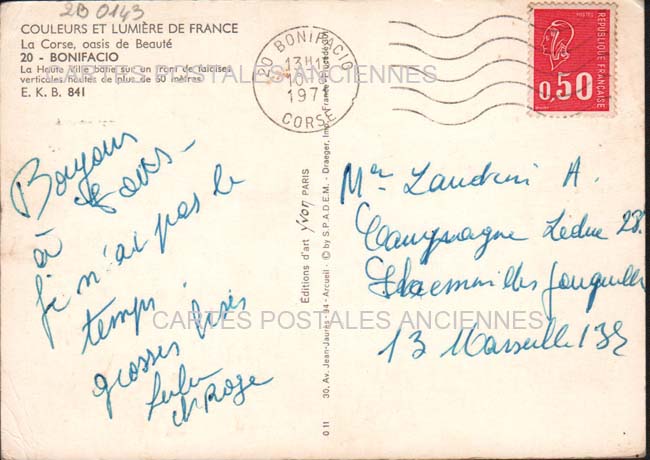 2B 0143
COULEURS ET LUMIÈRE DE FRANCE
La Corse, oasis de Beauté
20 - BONIFACIO
La Haute Ville bâtie sur un front de falaises
verticales hautes de plus de 60 mètres
E. K. B. 841
20 BONIFACIO
13H15
197
CORSE
POSTES
RÉPUBLIQUE FRANÇAISE
0,50
CARTES POSTALES ANCIENNES
Bonjour
à tous -
je n'ai pas le
temps.
grosses bises
Lulu
et Roge
Editions d'art Yvon PARIS
30, Av. Jean-Jaurès - 94 - Arcueil - © by S.P.A.D.E.M. - Draeger, Imp.
0 11
Mr Landini A.
Campagne Leduc 28
13 Marseille 13e
CARTES POSTALES ANCIENNES